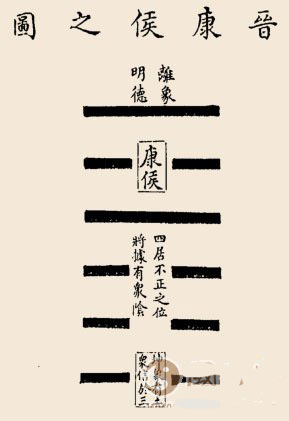 晉康侯之圖
離象
明德
康侯
四居不正之位
將據有眾陰
眾信於三